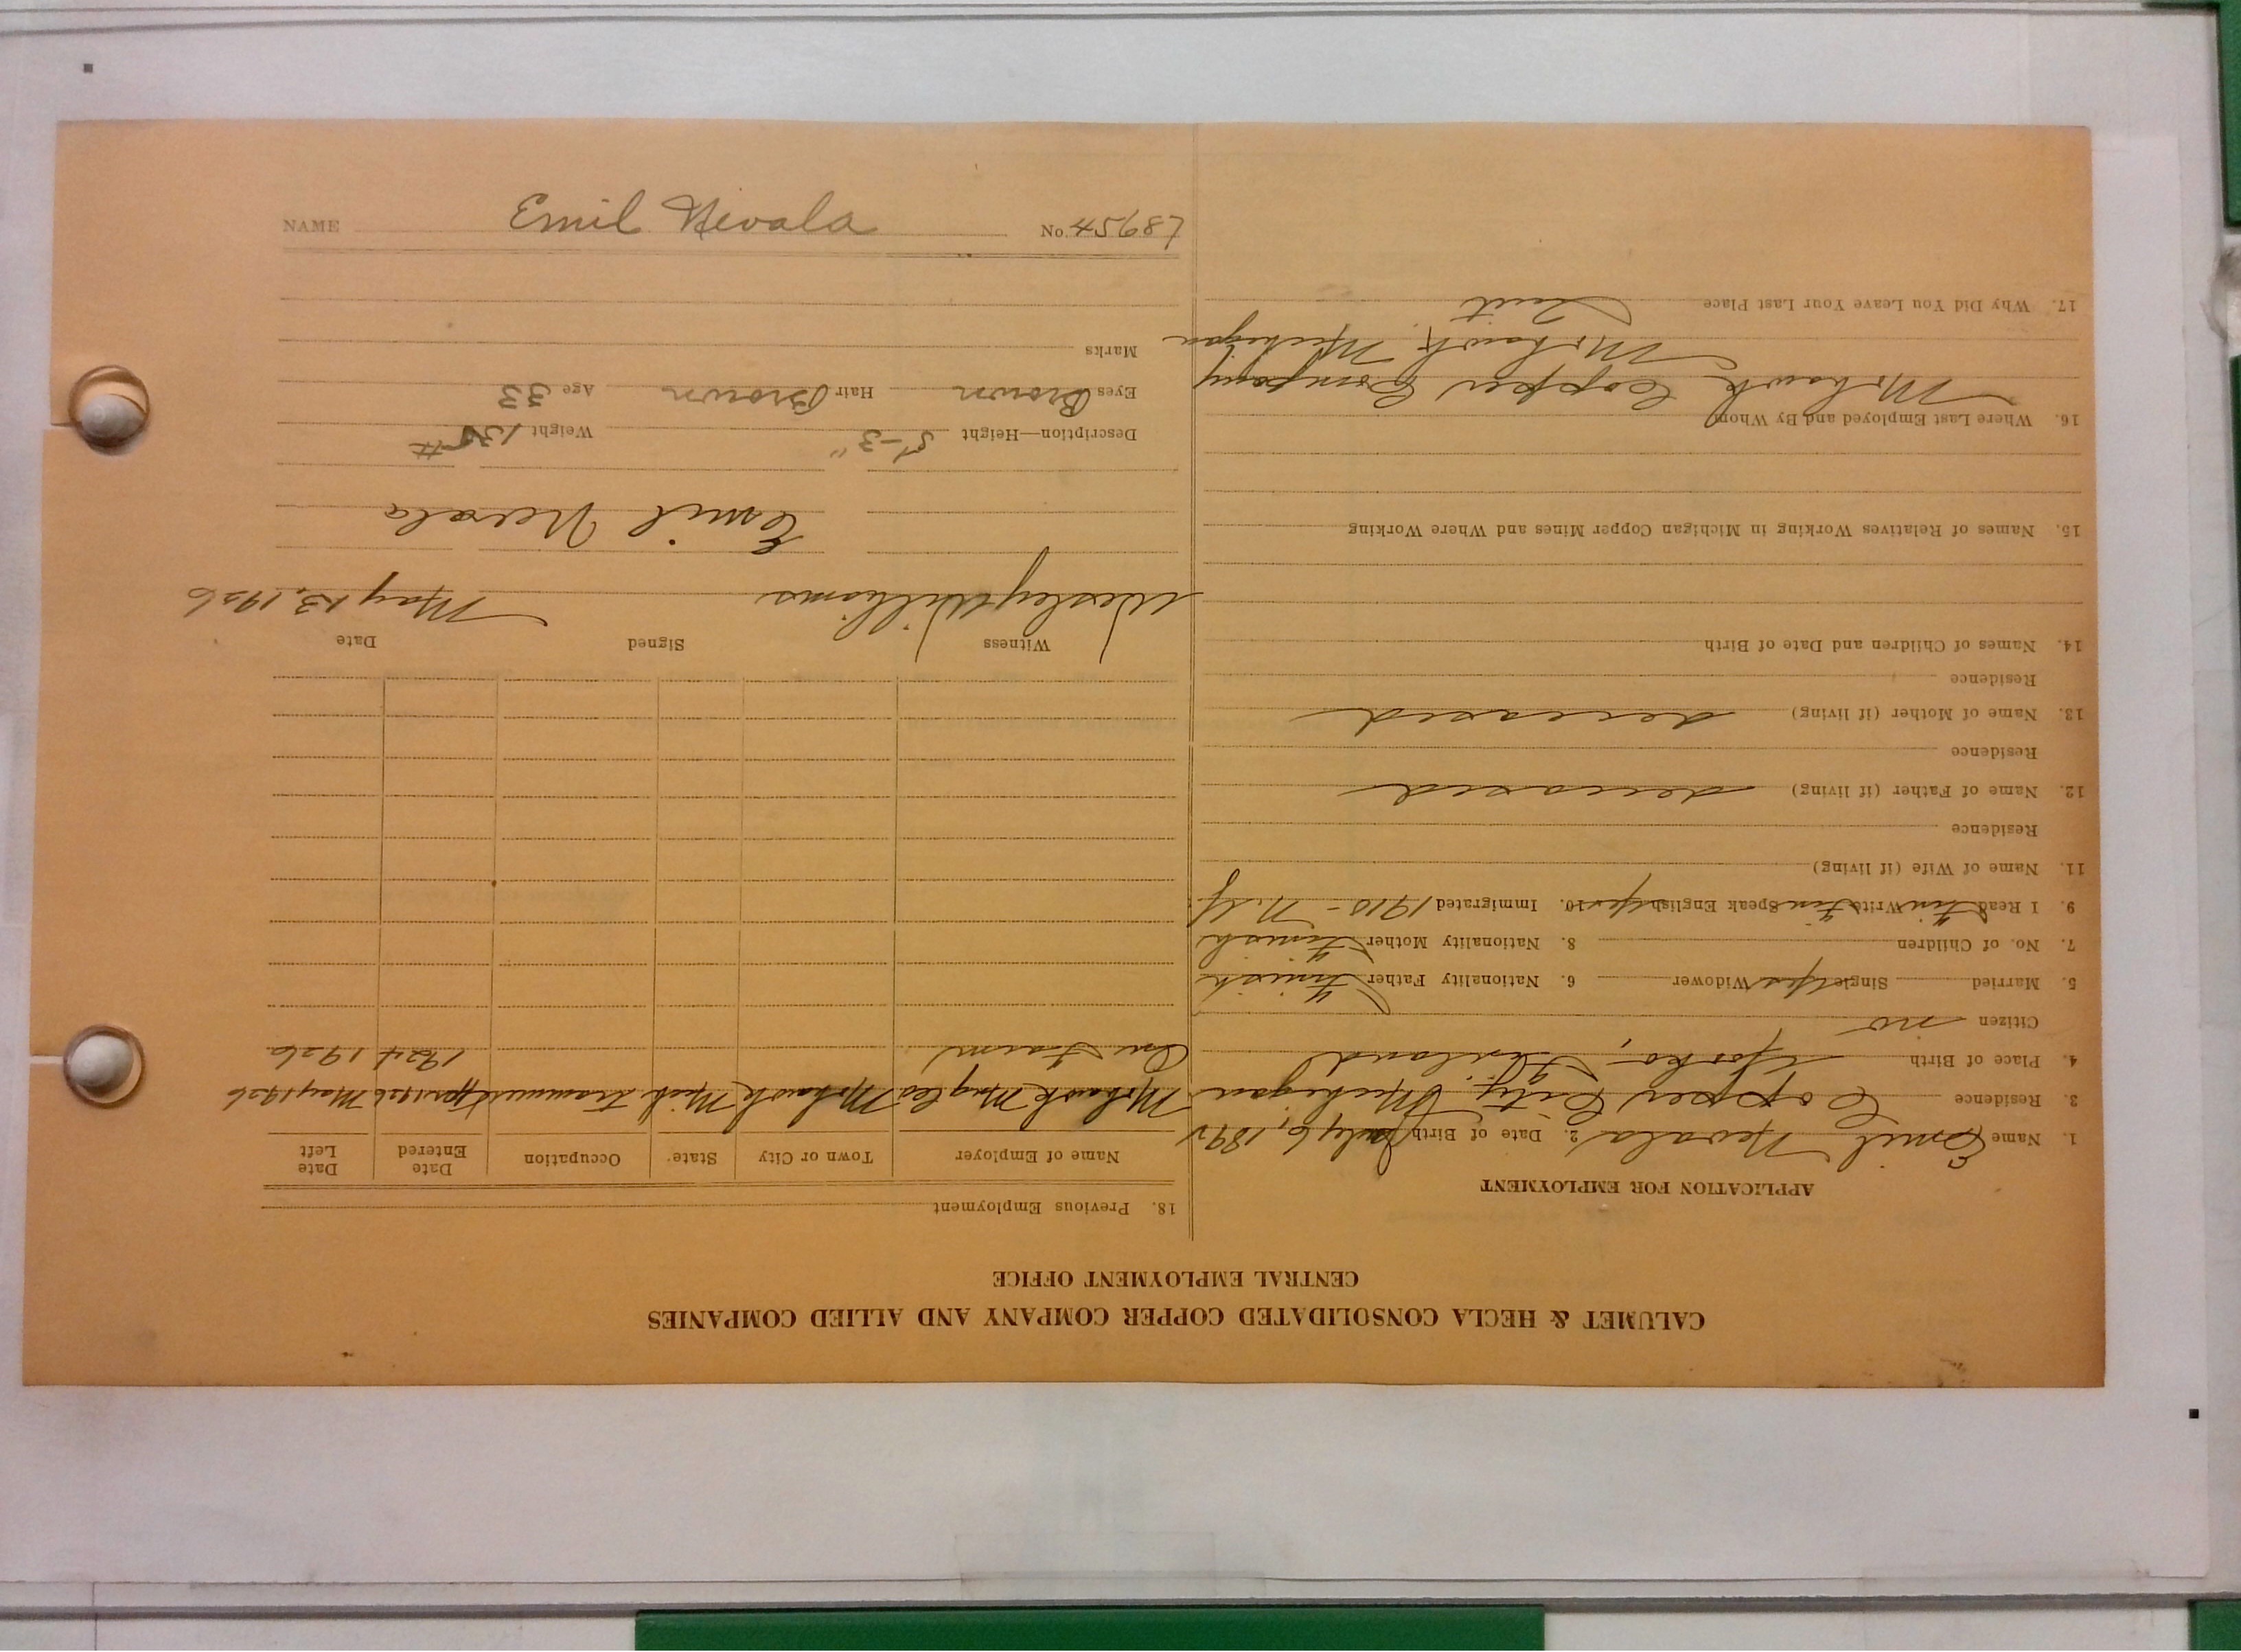 CALUMET & HECLA CONSOLIDATED COPPER COMPANY AND ALLIED COMPANIES
CENTRAL EMPLOYMENT OFFICE
APPLICATION FOR EMPLOYMENT
1. Name Emil Nevala 2. Date of Birth July 6, 1892
3. Residence Copper City, Michigan
4. Place of Birth Finland
Citizen no
5. Married Single yes Widower 6. Nationality Father Finish
7. No. of Children 8. Nationality Mother Finish
9. I Read Fin Write Fin Speak English yes 10. Immigrated 1910 - N.Y.
11. Name of Wife (if living)
Residence
12. Name of Father (if living) deceased
Residence
13. Name of Mother (if living) deceased
Residence
14. Names of Children and Date of Birth
15. Names of Relatives Working in Michigan Copper Mines and Where Working
16. Where Last Employed and By Whom
Mohawk Copper Company
Mohawk, Michigan
17. Why Did You Leave Your Last Place Quit
18. Previous Employment
Name of Employer Town or City State Occupation Date Entered Date Left
Mohawk Mng Co Mohawk Mich Trammer Apr 1926 May 1926
On Farm 1924 1926
Witness Signed Date
Wesley Williams May 13, 1926
Emil Nevala
Description—Height 5'-3" Weight 135#
Eyes Brown Hair Brown Age 33
Marks
NAME Emil Nevala No.